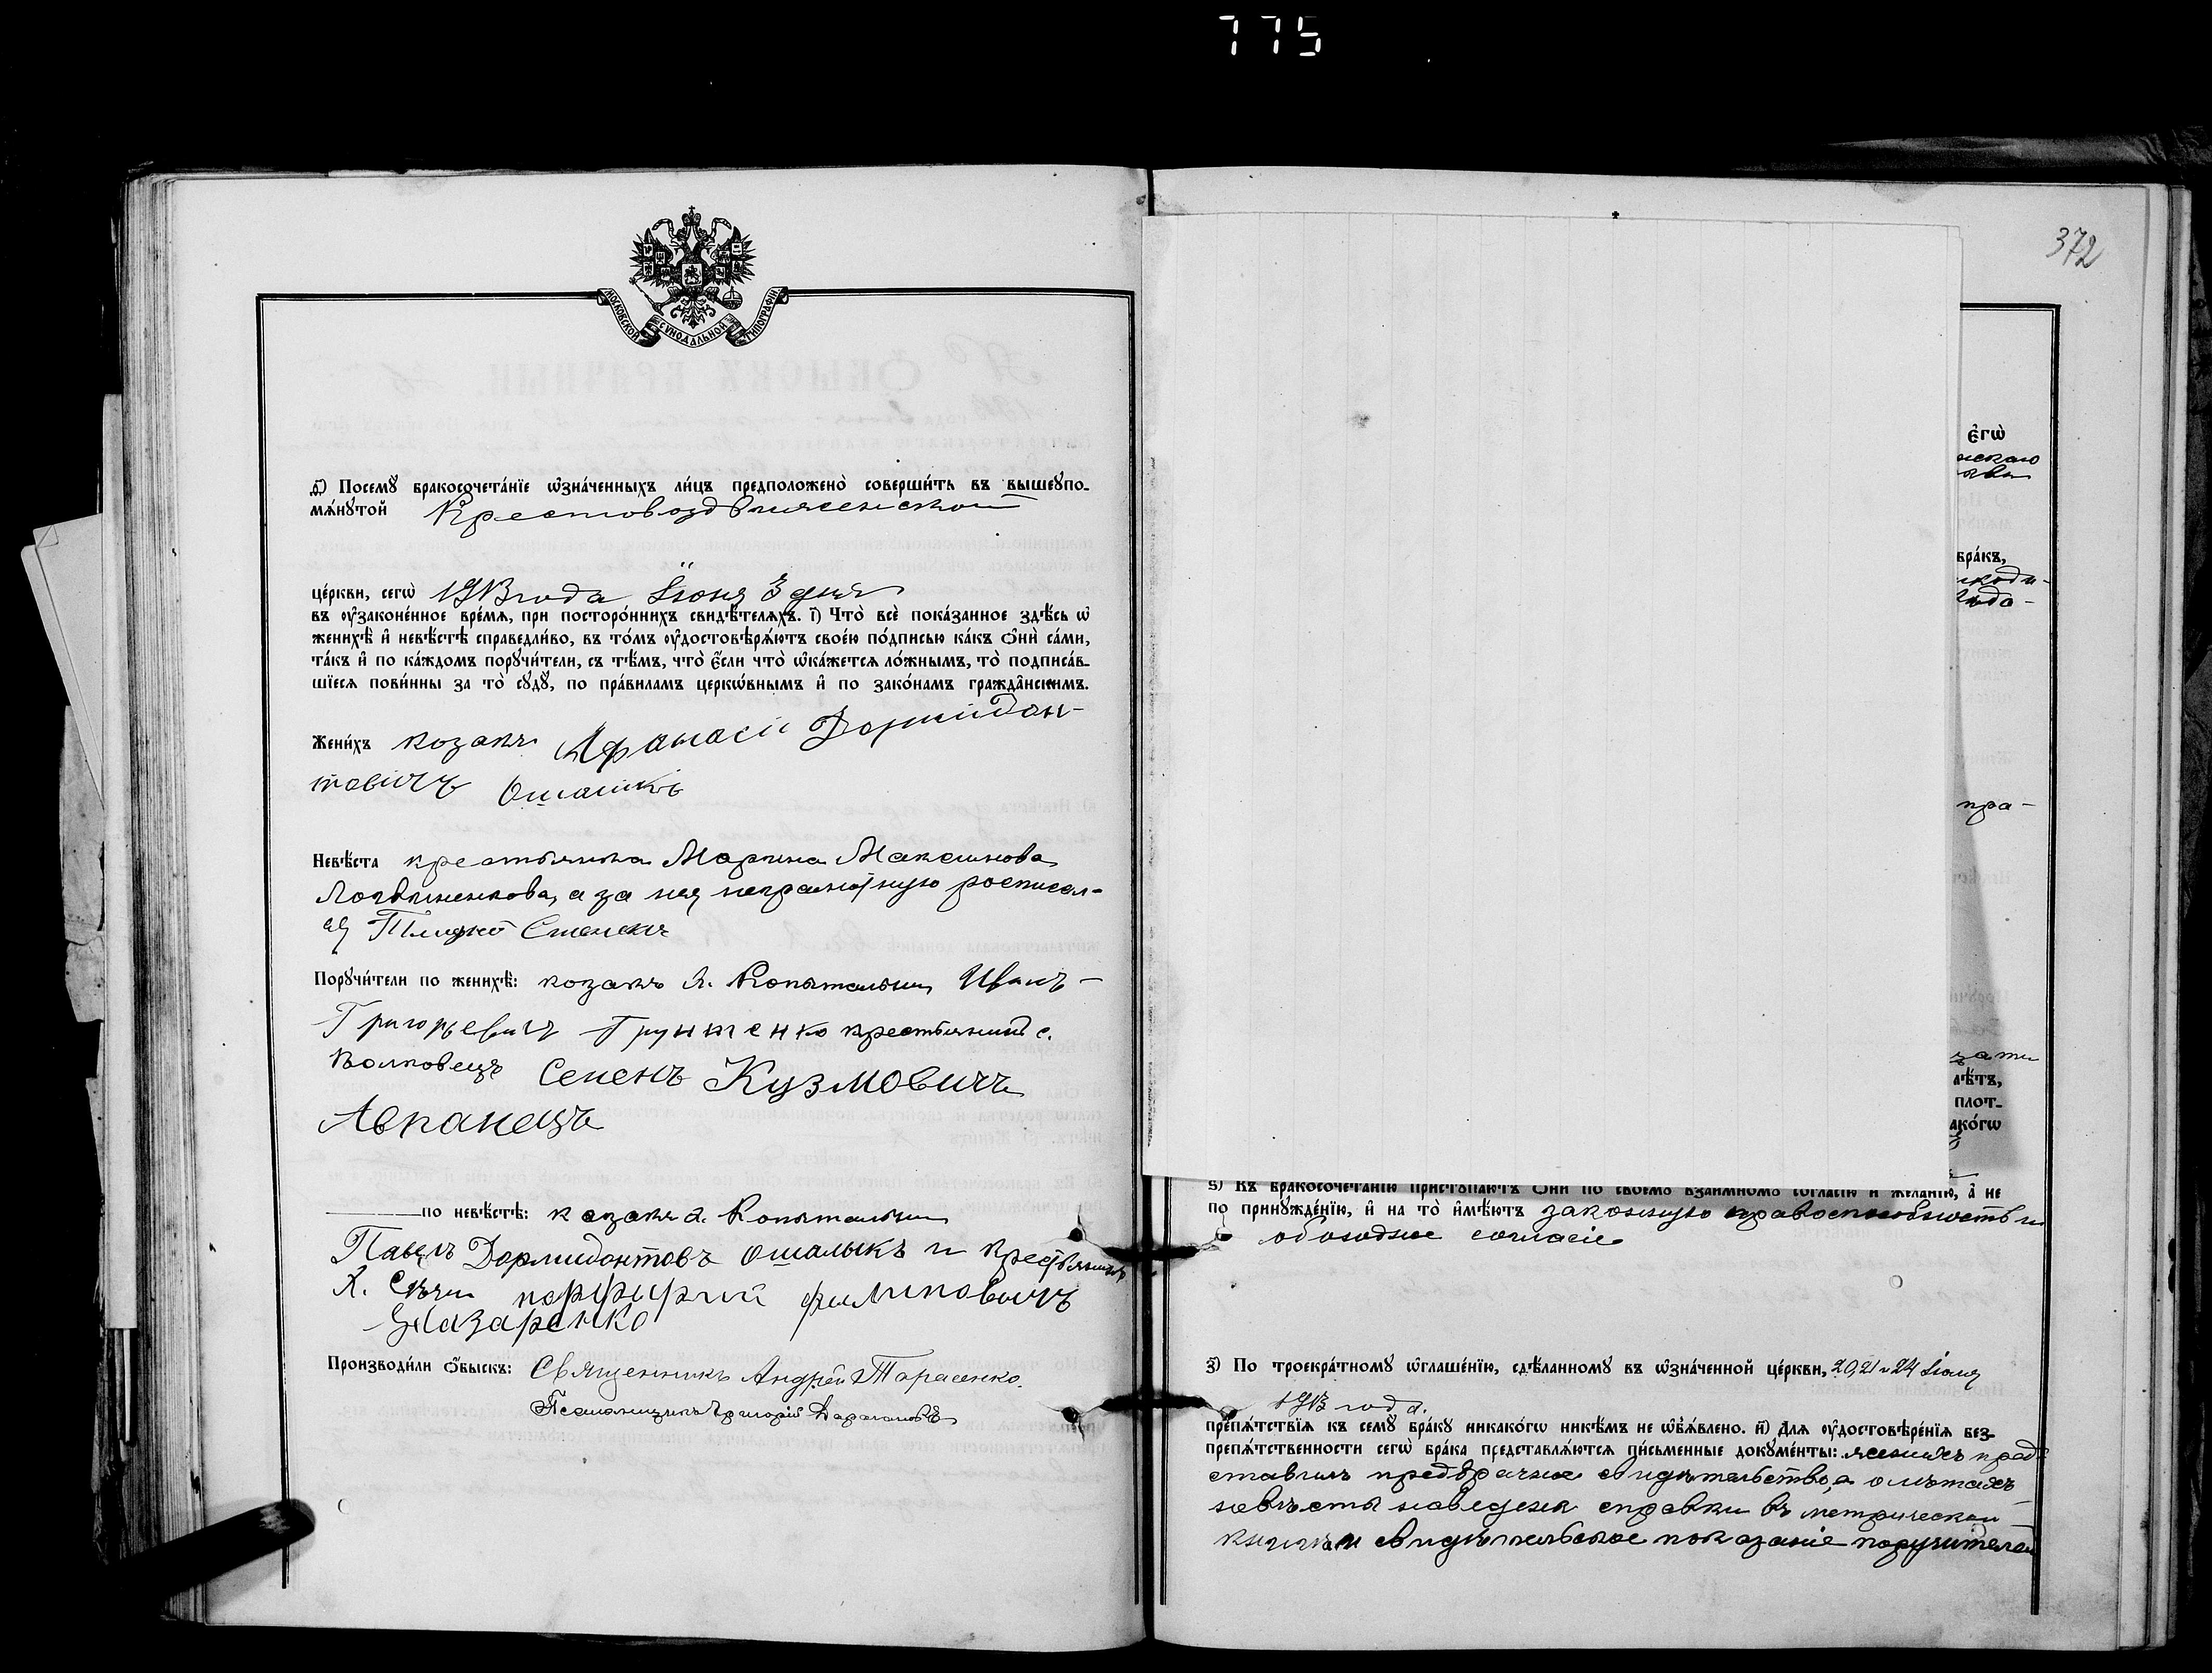 775
МОСКОВСКОЙ СУНОДАЛЬНОЙ ТИПОГРАФІИ
д҃) Посемꙋ̀ бракосочета́нїе ѡ҆зна́ченныхъ ли́цъ предположено̀ соверши́ть въ вышеꙋпо-
мѧ́нꙋтой Крестовоздвиженской
це́ркви, сегѡ̀ 1913 года Іюня 3 дня
въ ᲂу҆законе́нное вре́мѧ, при посторо́ннихъ свидѣ́телѧхъ. і҃) Что̀ всѐ пока́занное здѣ́сь ѡ҆
женихѣ̀ и҆ невѣ́стѣ справедли́во, въ то́мъ ᲂу҆достовѣрѧ́ютъ свое́ю по́дписью ка́къ ѻ҆нѝ са́ми,
та́къ и҆ по ка́ждомъ порꙋчи́тели, съ тѣ́мъ, что̀ є҆́сли что̀ ѡ҆ка́жетсѧ ло́жнымъ, то̀ подписа́в-
шїесѧ пови́нны за то̀ сꙋдꙋ̀, по пра́виламъ церкѡ́внымъ и҆ по зако́намъ гражда̑нскимъ.
Жени́хъ козакъ Афанасій Дормидон-
товичъ
Невѣ́ста крестьянка Марина Максимова
а за нея неграмотную росписал-
ся
Порꙋчи́тели по женихѣ̀: козакъ д. Копыталыни Иванъ
Григорьевичъ Грунтенко крестьянинъ с.
Волковецъ Семенъ Кузмовичъ
Авранецъ
по невѣ́стѣ: козакъ д. Копыталыни
Павелъ Дормидонтовъ Ошалыкъ и крестьянинъ
х. Сѣчи порфирій филиповичъ
Назаренко
Производи́ли ѻ҆́быскъ: Священникъ Андрей Тарасенко.
Псаломщикъ Григорій
372
є҆гѡ̀
бра́къ,
пра-
лѣ́тъ,
плот-
ако́гѡ
ѕ҃) Въ бракосочета́нїю пристꙋпа́ютъ ѻ҆нѝ по своемꙋ̀ взаи́мномꙋ согла́сїю и҆ жела́нїю, а҆ не
по принꙋжде́нїю, и҆ на то̀ и҆мѣ́ютъ законную правоспособность и
обоюдное согласіе
з҃) По троекра́тномꙋ ѡ҆глаше́нїю, сдѣ́ланномꙋ въ ѡ҆зна́ченной це́ркви, 20, 21 и 24 Іюня
1913 года.
препѧ́тствїѧ къ семꙋ̀ бра́кꙋ никако́гѡ никѣ́мъ не ѡ҆б̾ѧ́влено. и҃) Длѧ ᲂу҆достовѣре́нїѧ без-
препѧ́тственности сегѡ̀ бра́ка представлѧ́ютсѧ пи́сьменные докꙋме́нты: женихъ пред-
ставилъ предбрачное свидѣтельство, а о лѣтахъ
невѣсты наведена справка въ метрической
книгѣ и свидѣтельское показаніе поручителей